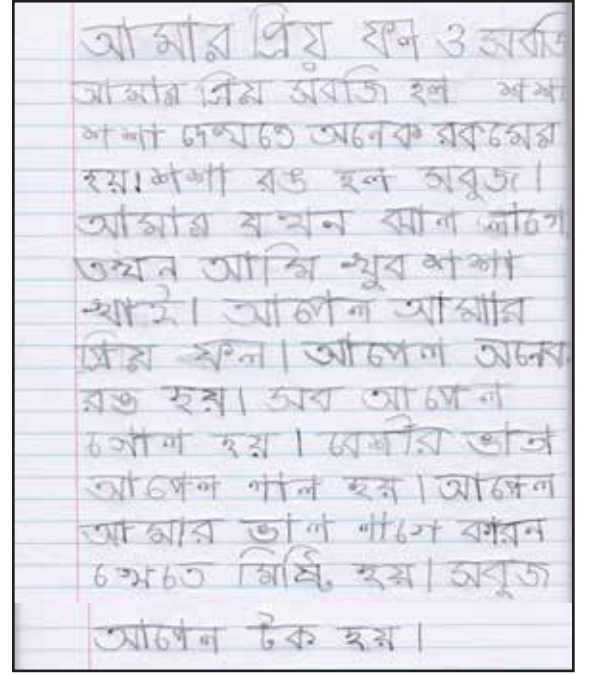 আমার প্রিয় ফল ও সবজি
আমার প্রিয় সবজি হল শশা
শশা দেখতে অনেক রকমের
হয়। শশা রঙ হল সবুজ।
আমার যখন ঝাল লাগে
তখন আমি খুব শশা
খাই। আপেল আমার
প্রিয় ফল। আপেল অনেক
রঙ হয়। সব আপেল
গোল হয়। বেশীর ভাগ
আপেল লাল হয়। আপেল
আমার ভাল লাগে কারন
খেতে মিষ্টি হয়। সবুজ
আপেল টক হয়।